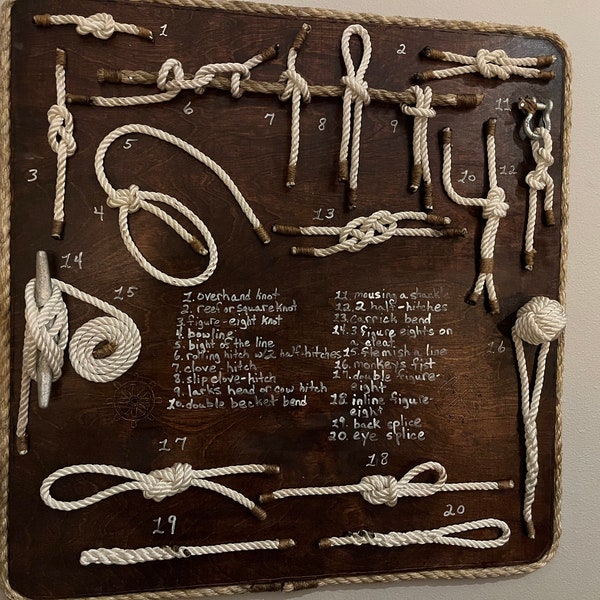 1
2
3
4
5
6
7
8
9
10
11
12
13
14
15
16
1. overhand knot
2. reef or square knot
3. figure-eight knot
4. bowline
5. bight of the line
6. rolling hitch w/2 half-hitches
7. clove-hitch
8. slip clove-hitch
9. larks head or cow hitch
10. double becket bend
11. mousing a shackle
12. 2 half-hitches
13. Carrick bend
14. 3 figure eights on
a cleat
15. flemish a line
16. monkeys fist
17. double figure-
eight
18. inline figure-
eight
19. back splice
20. eye splice
17
18
19
20